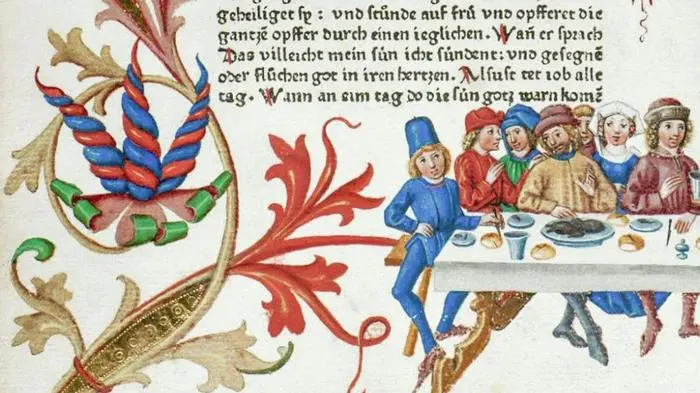 geheiliget sy : vnd stůnde auf frů vnd opfferet die
gantzē opffer durch einen ieglichen. Wañ er sprach
Das villeicht mein sůn icht sůndent: vnd gesegnē
oder flůchen got in iren hertzen. Alsust tet iob alle
tag. Wann an eim tag do die sůn gotz warn komē